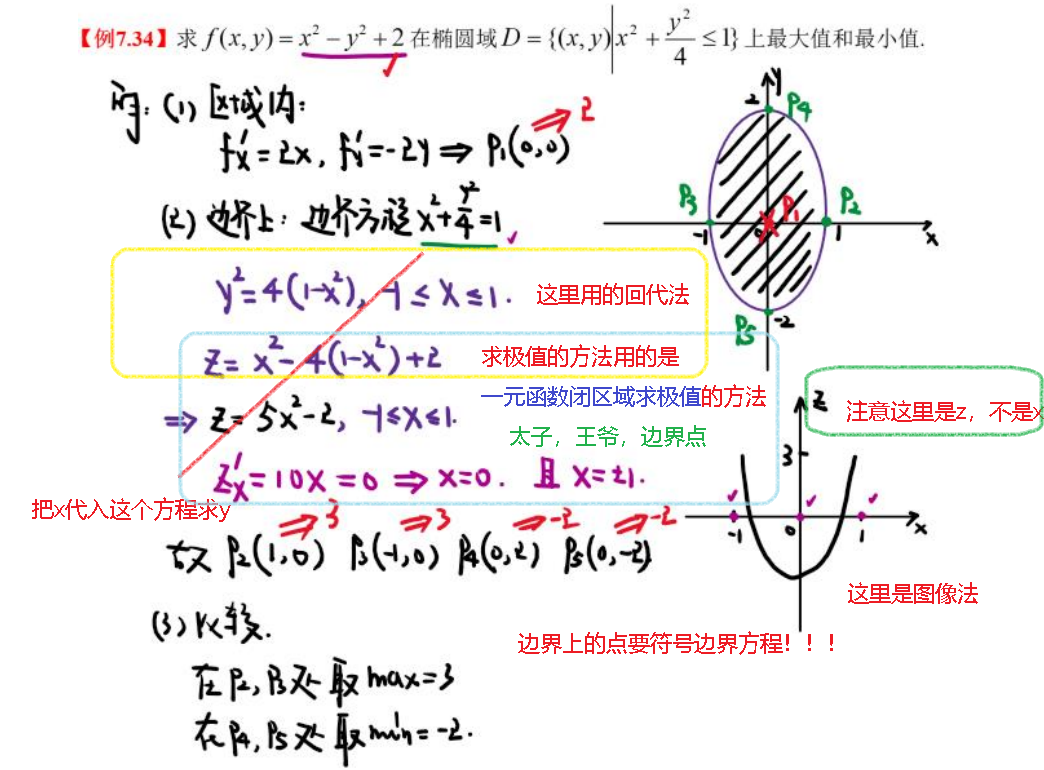 【例7.34】求 f(x,y)=x²−y²+2 在椭圆域 D={(x,y)|x²+y²/4≤1} 上最大值和最小值.
解: (1) 区域内:
f'x=2x, f'y=-2y ⇒ P₁(0,0) ⇒ 2
(2) 边界上: 边界方程 x²+y²/4=1
y²=4(1-x²), -1≤x≤1.
这里用的回代法
z=x²-4(1-x²)+2
求极值的方法用的是
一元函数闭区域求极值的方法
⇒ z=5x²-2, -1≤x≤1.
太子，王爷，边界点
z'x=10x=0 ⇒ x=0. 且 x=±1.
把x代入这个方程求y
⇒3 ⇒3 ⇒-2 ⇒-2
故 P₂(1,0) P₃(-1,0) P₄(0,2) P₅(0,-2)
(3) 比较.
在P₂, P₃处取max=3
在P₄, P₅处取min=-2.
y
2
P₄
P₃
P₁
P₂
-1
0
1
x
P₅
-2
z
注意这里是z，不是x
3
-1
0
1
x
这里是图像法
边界上的点要符号边界方程！！！